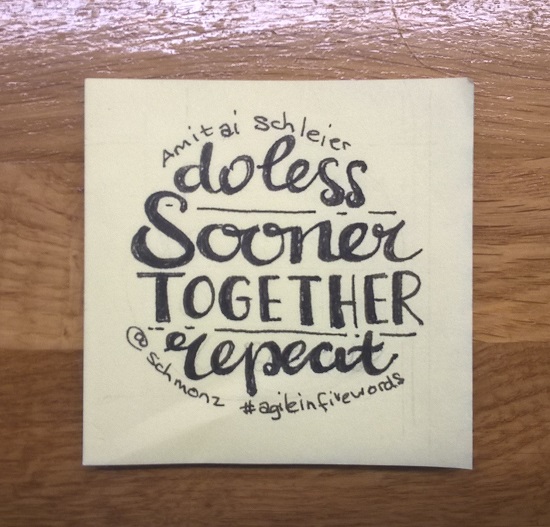 Amitai Schleier
do less
Sooner
TOGETHER
repeat
@schmonz #agileinfivewords